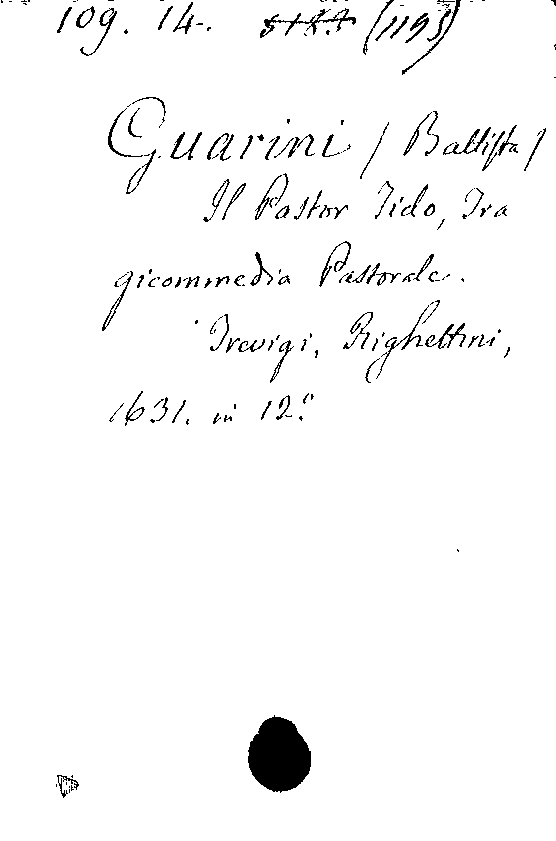 109. 14. (1195)
Guarini / Battista /
Il Pastor Fido, Tra
gicommedia Pastorale.
Trevigi, Righettini,
1631. in 12.°